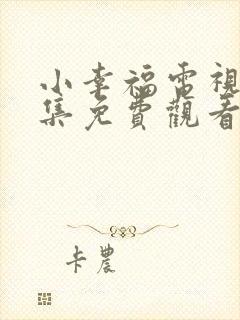 小幸福電視
集免費觀看
卡農